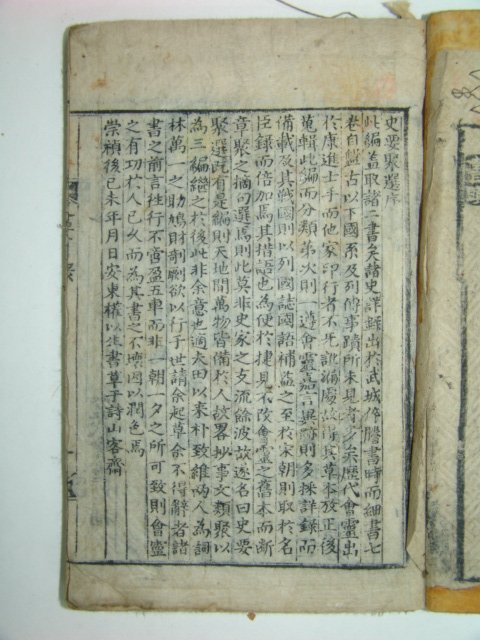 史要聚選序
此編蓋取諸二書矣諸史詳錄出於武城倅謄書時而細書七
卷自盤古以下國系及列傳事蹟所未見者少矣歷代會靈出
於康進士手而他家印行者不
蒐輯此編而分類第次則一遵會靈嘉言異跡則多採詳錄而
備載及其戰國則以列國誌國語補益之至於宋朝則取於名
臣錄而倍加焉其措語也為便於捷見不改會靈之舊本而斷
章聚之摘句選焉則此莫非史家之支流餘波故遂名曰史要
聚選此有是編則天地間萬物皆備於人該畧抄事文類聚以
為三編繼之於後此非余意也適太田以素朴致維兩人為詞
林萬一之助鳩財剞劂欲以行于世請余起草余不得辭者諸
書之前言往行不啻盈五車而非一朝一夕之所可致則會靈
之有功於人已久而為其書之不壞因以潤色焉
崇禎後己未年月日安東權以生書草于詩山客齋